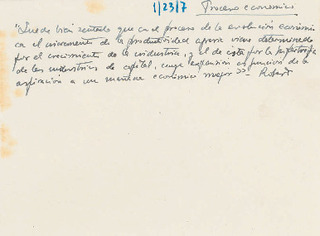 1/23/7 Proceso económico
"Queda bien sentado que en el proceso de la evolución económica
en el incremento de la productividad aparece viene determinado
por el crecimiento de la industria, y el de ésta por la
de las industrias de capital, cuya expansión es función de la
aspiración a un económico mejor >> - Robert